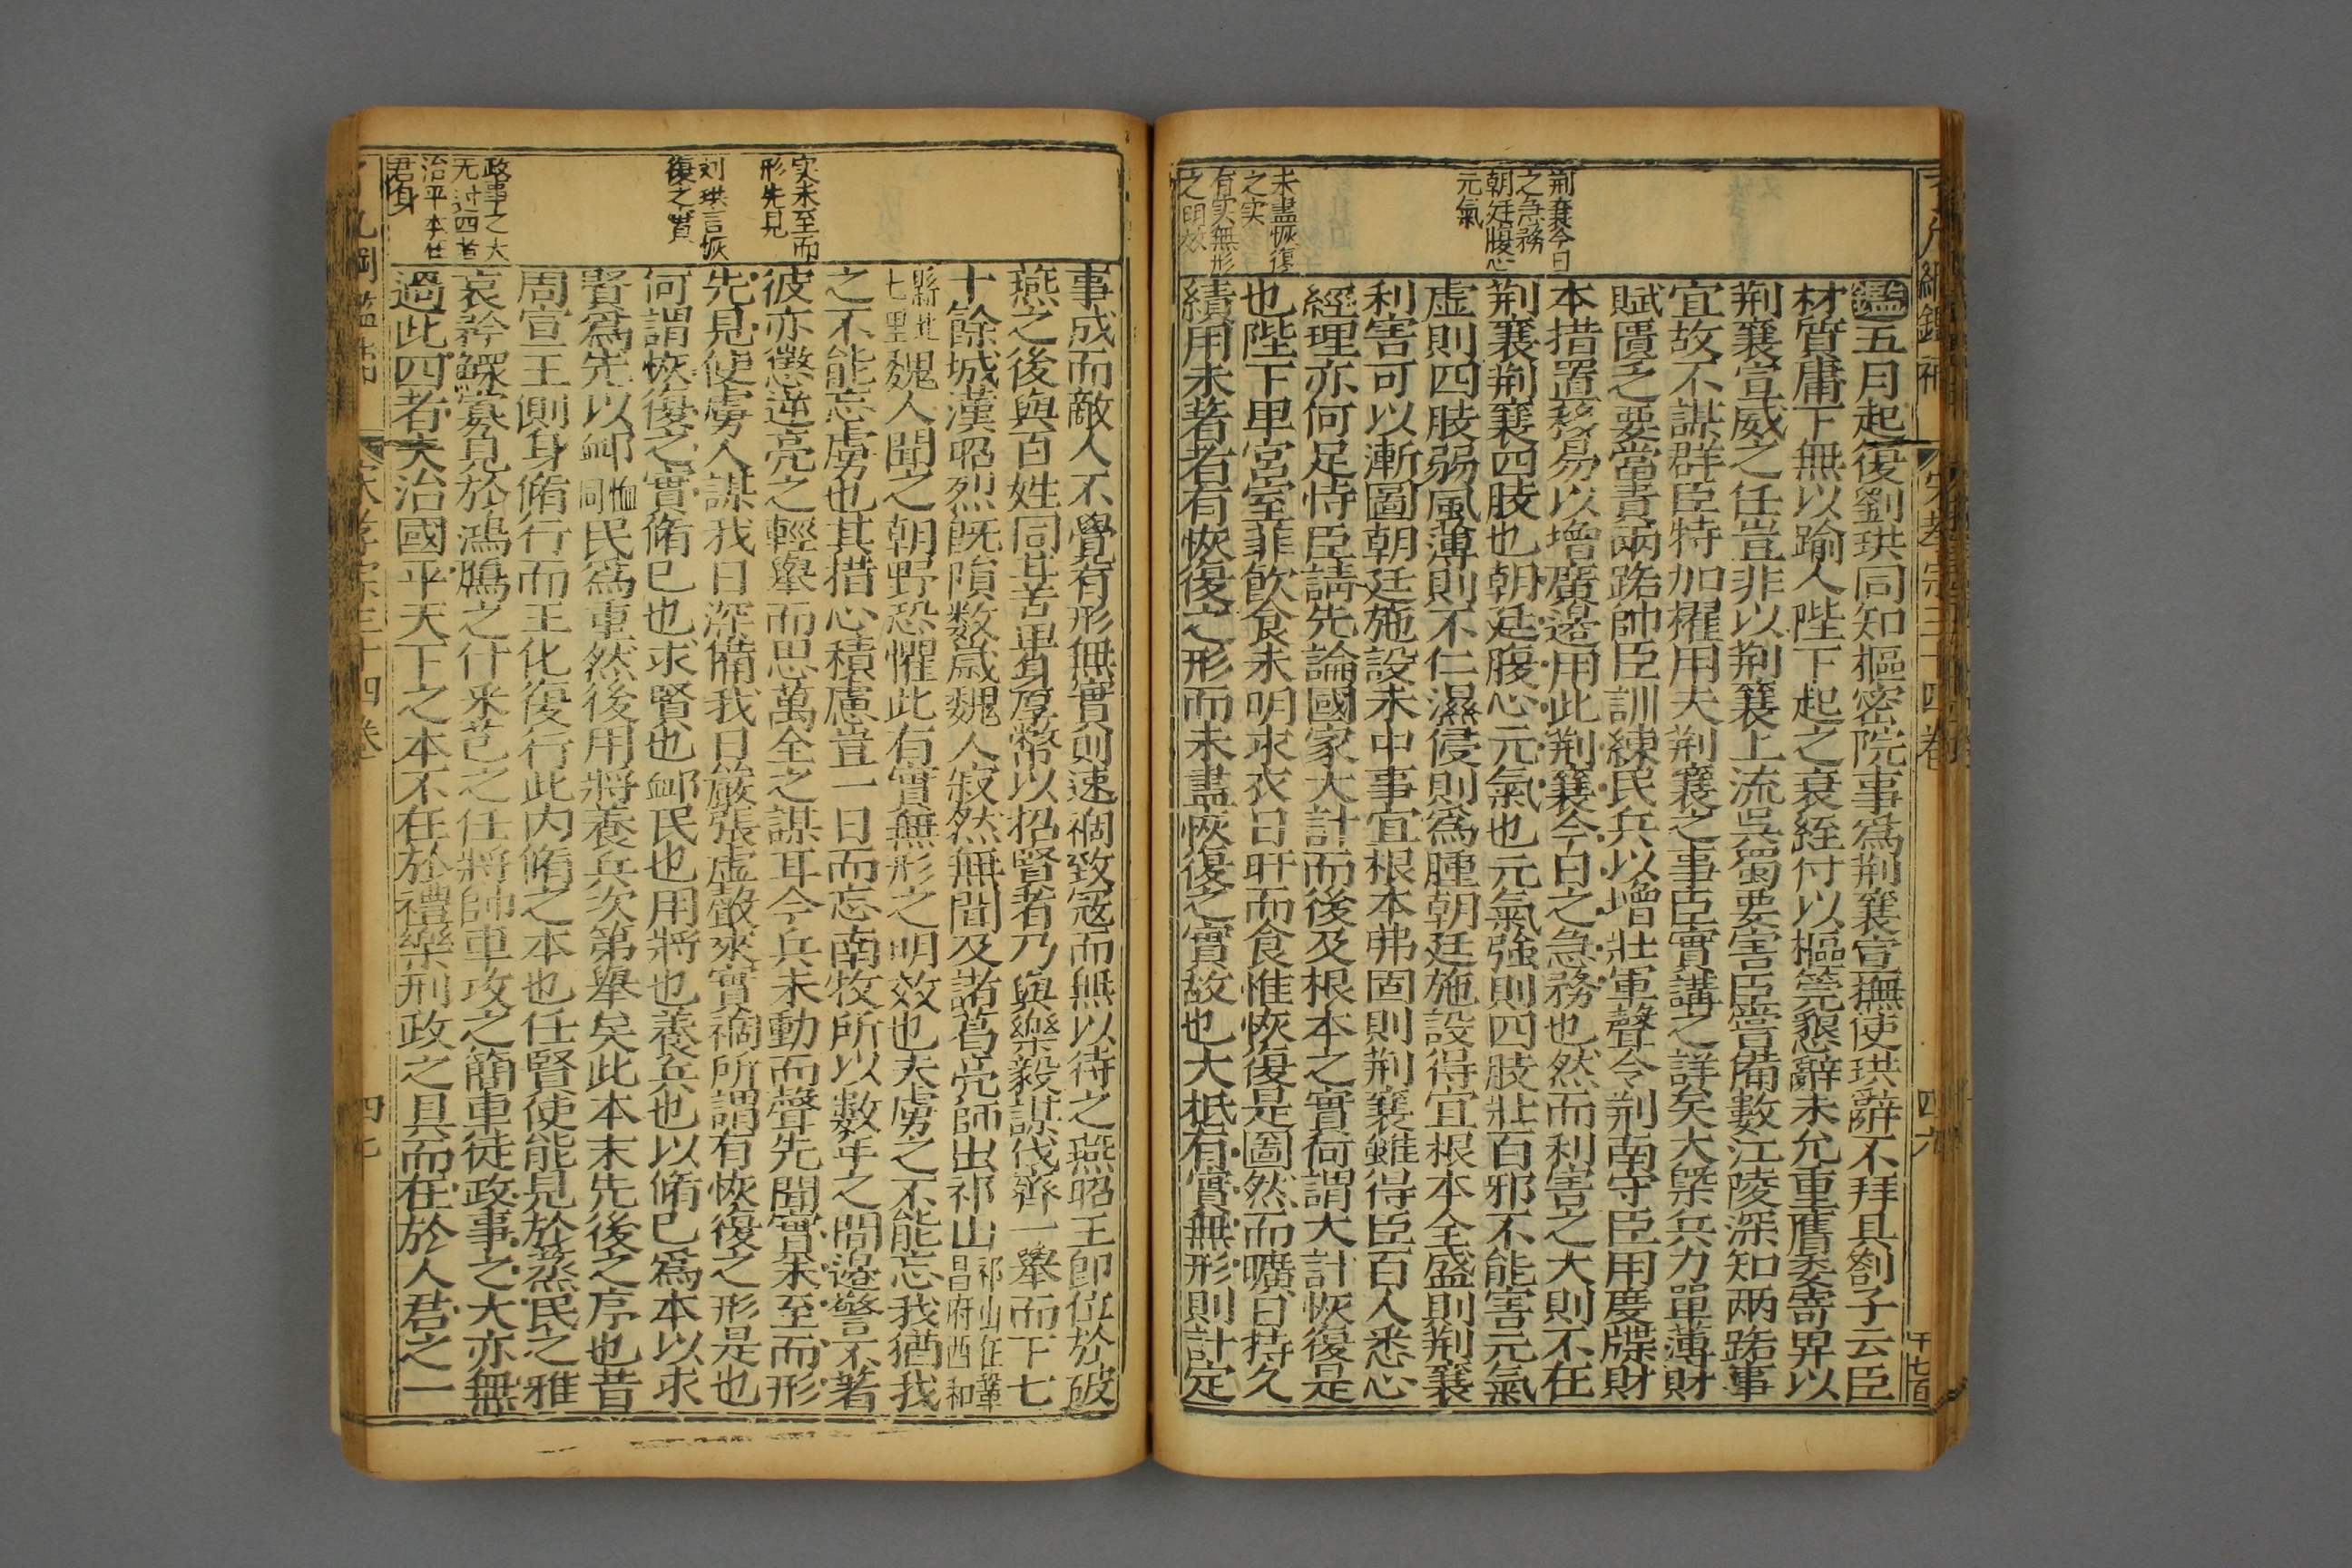 荆襄今日
之急務
朝廷腹心
元氣
未盡恢復
之实
有实無形
之明效
鑑五月起復劉珙同知樞密院事為荆襄宣撫使珙辭不拜具劄子云臣
材質庸下無以踰人陛下起之衰絰付以樞筦懇辭未允重膺委寄畀以
荆襄宣威之任豈非以荆襄上流吳蜀要害臣嘗備數江陵深知兩路事
宜故不謀群臣特加擢用夫荆襄之事臣實講之詳矣大槩兵力單薄財
賦匱乏要當責兩路帥臣訓練民兵以增壯軍聲令荆南守臣用度牒財
本措置務易以增廣邊用此荆襄今日之急務也然而利害之大則不在
荆襄荆襄四肢也朝廷腹心元氣也元氣強則四肢壯百邪不能害元氣
虚則四肢弱風薄則不仁濕侵則為腫朝廷施設得宜根本全盛則荆襄
利害可以漸圖朝廷施設未中事宜根本弗固則荆襄雖得臣百人悉心
經理亦何足恃臣請先論國家大計而後及根本之實何謂大計恢復是
也陛下卑宮室菲飲食未明求衣日旰而食惟恢復是圖然而曠日持久
績用未著者有恢復之形而未盡恢復之實故也大抵有實無形則計定
宋孝宗三十四卷
四六
实未至而
形先見
刘珙言恢
復之實
政事之大
无过四者
治平本在
君身
事成而敵人不覺有形無實則速禍致寇而無以待之燕昭王即位於破
燕之後與百姓同甘苦卑身厚幣以招賢者乃與樂毅謀伐齊一舉而下七
十餘城漢昭烈既隕数歲魏人寂然無聞及諸葛亮師出祁山祁山在鞏昌府西和
縣北七里魏人聞之朝野恐懼此有實無形之明效也夫虜之不能忘我猶我
之不能忘虜也其措心積慮豈一日而忘南牧所以數年之間邊警不著
彼亦懲逆亮之輕舉而思萬全之謀耳今兵未動而聲先聞實未至而形
先見使虜人謀我日深備我日嚴張虚聲來實禍所謂有恢復之形是也
何謂恢復之實脩已也求賢也䘏民也用將也養兵也以脩已為本以求
賢為先以䘏恤同民為重然後用將養兵次第舉矣此本末先後之序也昔
周宣王側身脩行而王化復行此内脩之本也任賢使能見於蒸民之雅
哀矜鰥寡見於鴻鴈之什采芑之任將帥車攻之簡車徒政事之大亦無
過此四者夫治國平天下之本不在於禮樂刑政之具而在於人君之一
宋孝宗三十四卷